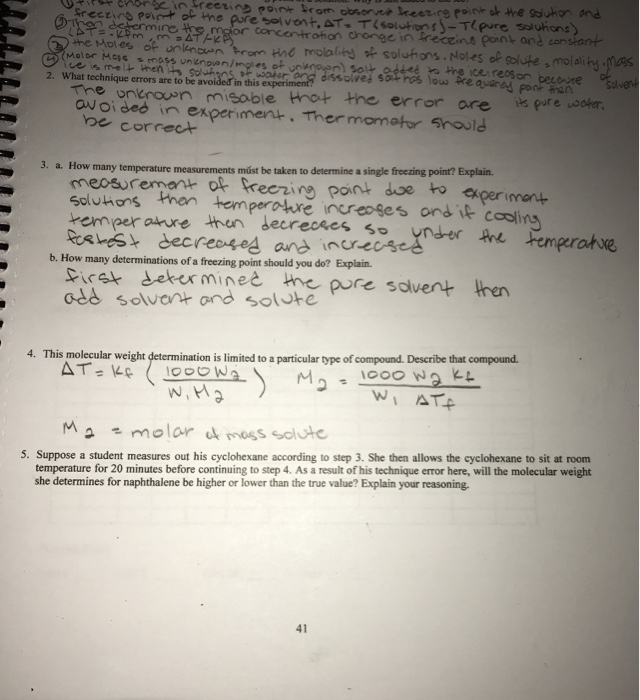 ① first change in freezing point from observed freezing point of the solution and
freezing point of the pure solvent. ΔT = T(solutions) - T(pure solutions)
② Then determine the molar concentration change in freezing point and constant
(ΔT = -Kbm, m = ΔT/-Kb)
③ the Moles of unknown from the molality of solutions. Moles of solute, molality, mass of solvent
④ (Molar Mass = mass unknown/moles of unknown) salt added to the ice reason because
ice is melt then its solutions of water and dissolved salt has low point then its pure water.
2. What technique errors are to be avoided in this experiment?
The unknown misable that the error are
avoided in experiment. Thermomotor should
be correct
3. a. How many temperature measurements must be taken to determine a single freezing point? Explain.
measurement of freezing point due to experiment
solutions then temperature increases and if cooling
temperature then decreces so under the temperature
fastest decreased and increcsed
b. How many determinations of a freezing point should you do? Explain.
first determined the pure solvent then
add solvent and solute
4. This molecular weight determination is limited to a particular type of compound. Describe that compound.
ΔT = Kf (1000 W2 / W1 M2) M2 = 1000 W2 Kf / W1 ΔTf
M2 = molar of mass solute
5. Suppose a student measures out his cyclohexane according to step 3. She then allows the cyclohexane to sit at room
temperature for 20 minutes before continuing to step 4. As a result of his technique error here, will the molecular weight
she determines for naphthalene be higher or lower than the true value? Explain your reasoning.
41